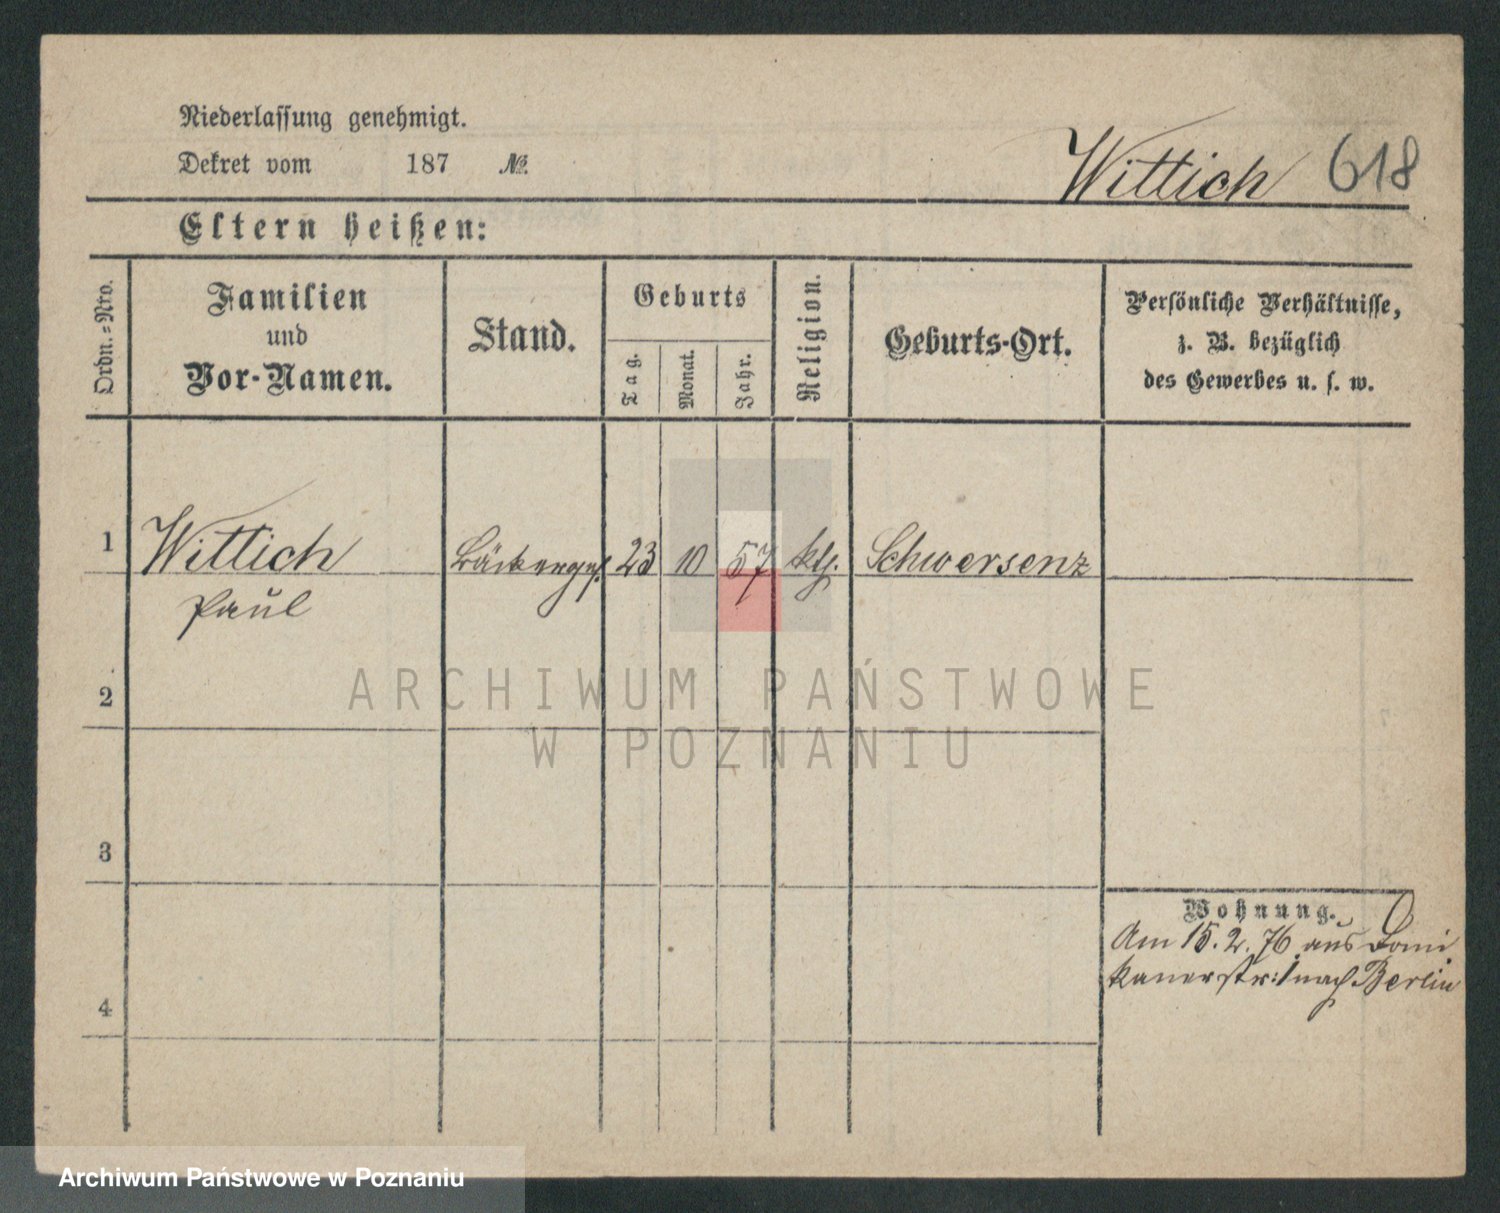 Niederlassung genehmigt.
Dekret vom 187 №.
Wittich 618
Eltern heißen:
Ordn.=Nro.
Familien
und
Vor-Namen.
Stand.
Geburts
Tag.
Monat.
Jahr.
Religion.
Geburts-Ort.
Persönliche Verhältnisse,
z. B. bezüglich
des Gewerbes u. s. w.
1 Wittich Bäckerges. 23 10 57 kth. Schwersenz
Paul
2
3
4
Wohnung.
Am 15. 2. 76 aus Domi
kanerstr: 1 nach Berlin
ARCHIWUM PAŃSTWOWE
W POZNANIU
Archiwum Państwowe w Poznaniu